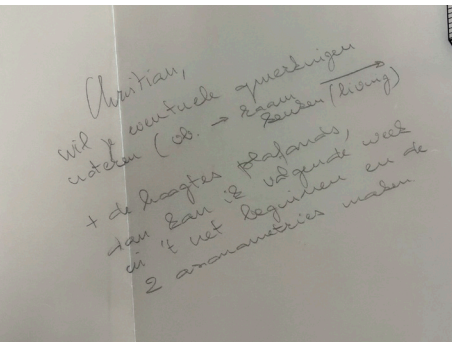 Christian,
wil je eventuele opmerkingen
noteren (vb. → raam
keuken (living)
+ de hoogtes plafonds,
dan kan ik volgende week
in 't net beginnen en de
2 axonometries maken